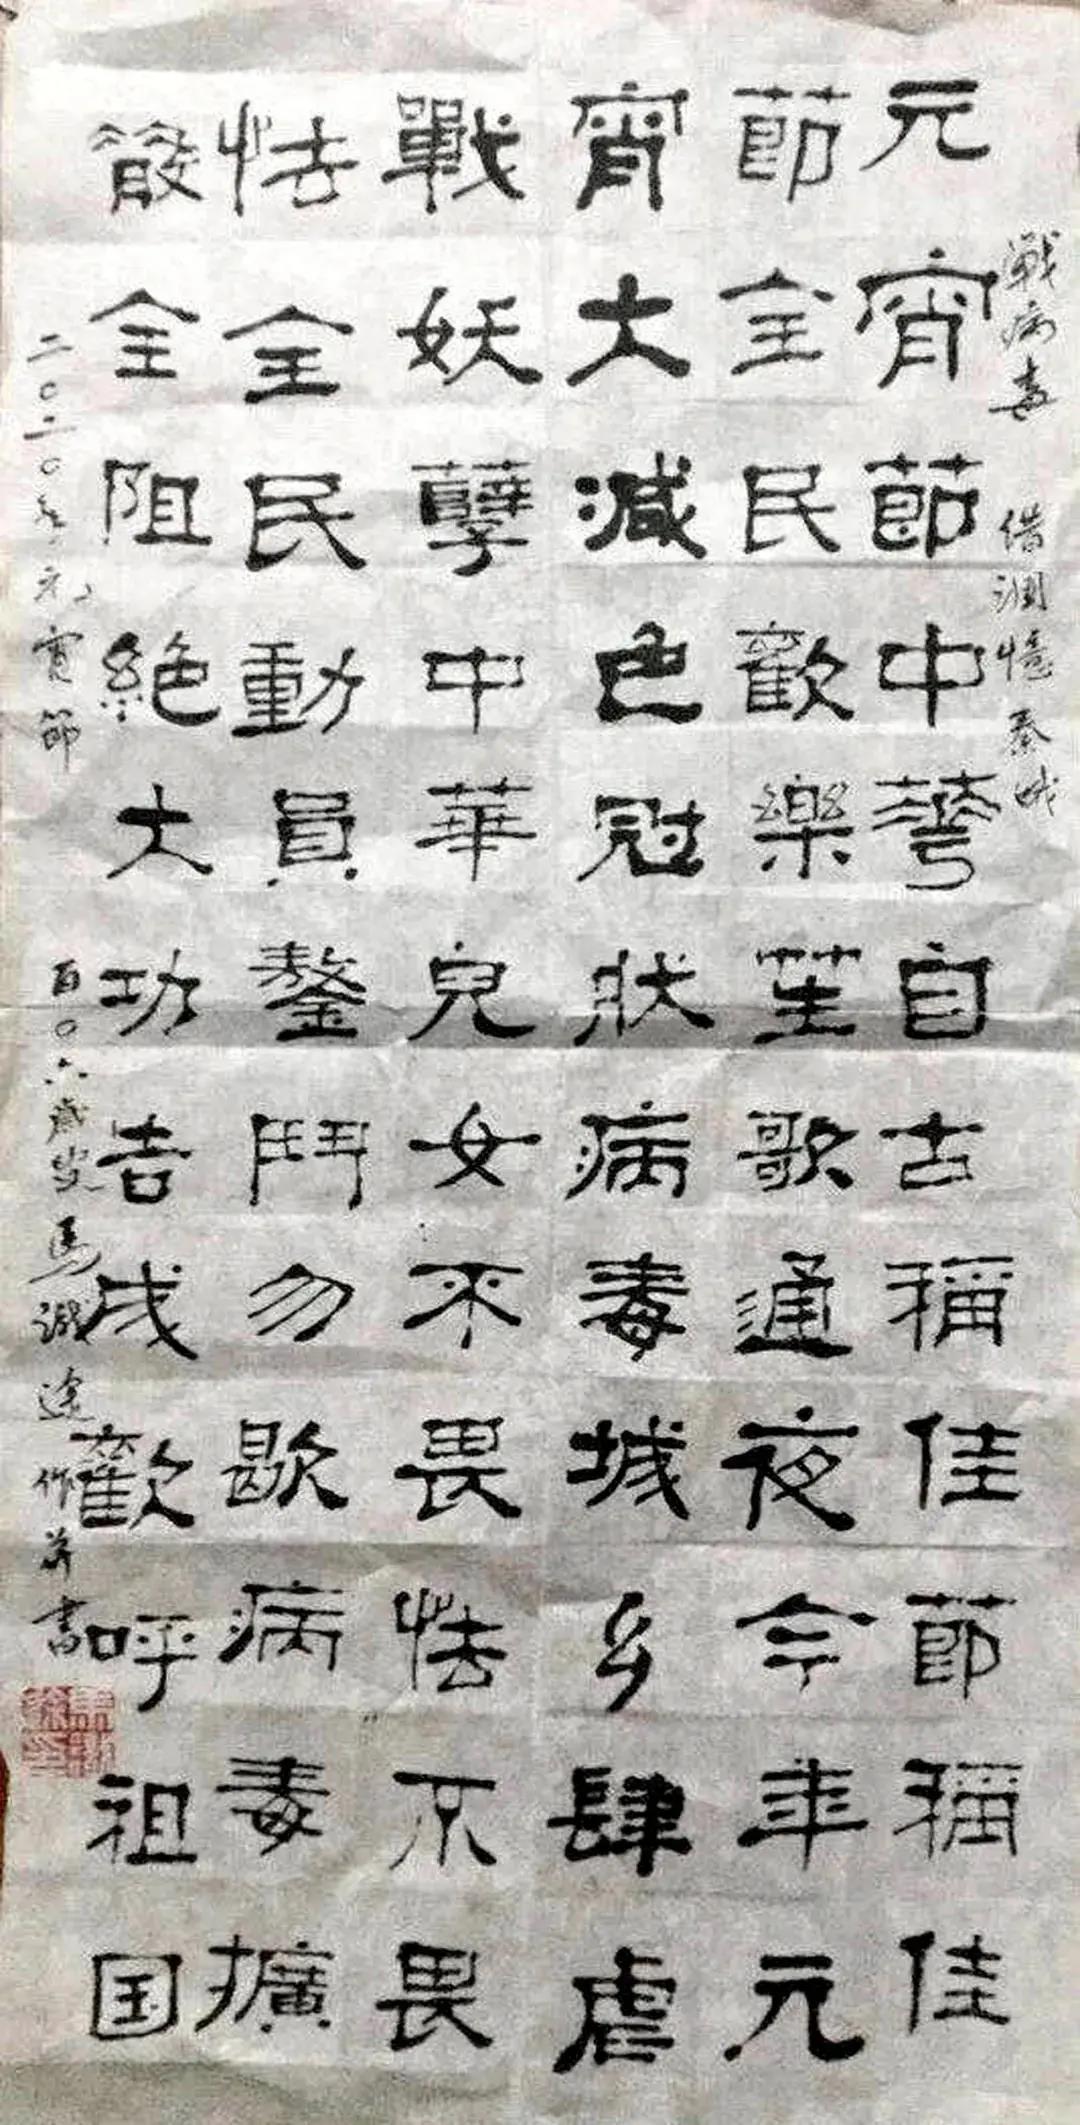 戰病毒　借調憶秦娥
元宵節中華自古稱佳節稱佳
節全民歡樂笙歌通夜今年元
宵大減色冠狀病毒城乡肆虐
戰妖孽中華兒女不畏怯不畏
怯全民動員鏖鬥勿歇病毒擴
散全阻絕大功告成歡呼祖国
二〇二〇年元宵節　百〇六歲叟馬識途作并書